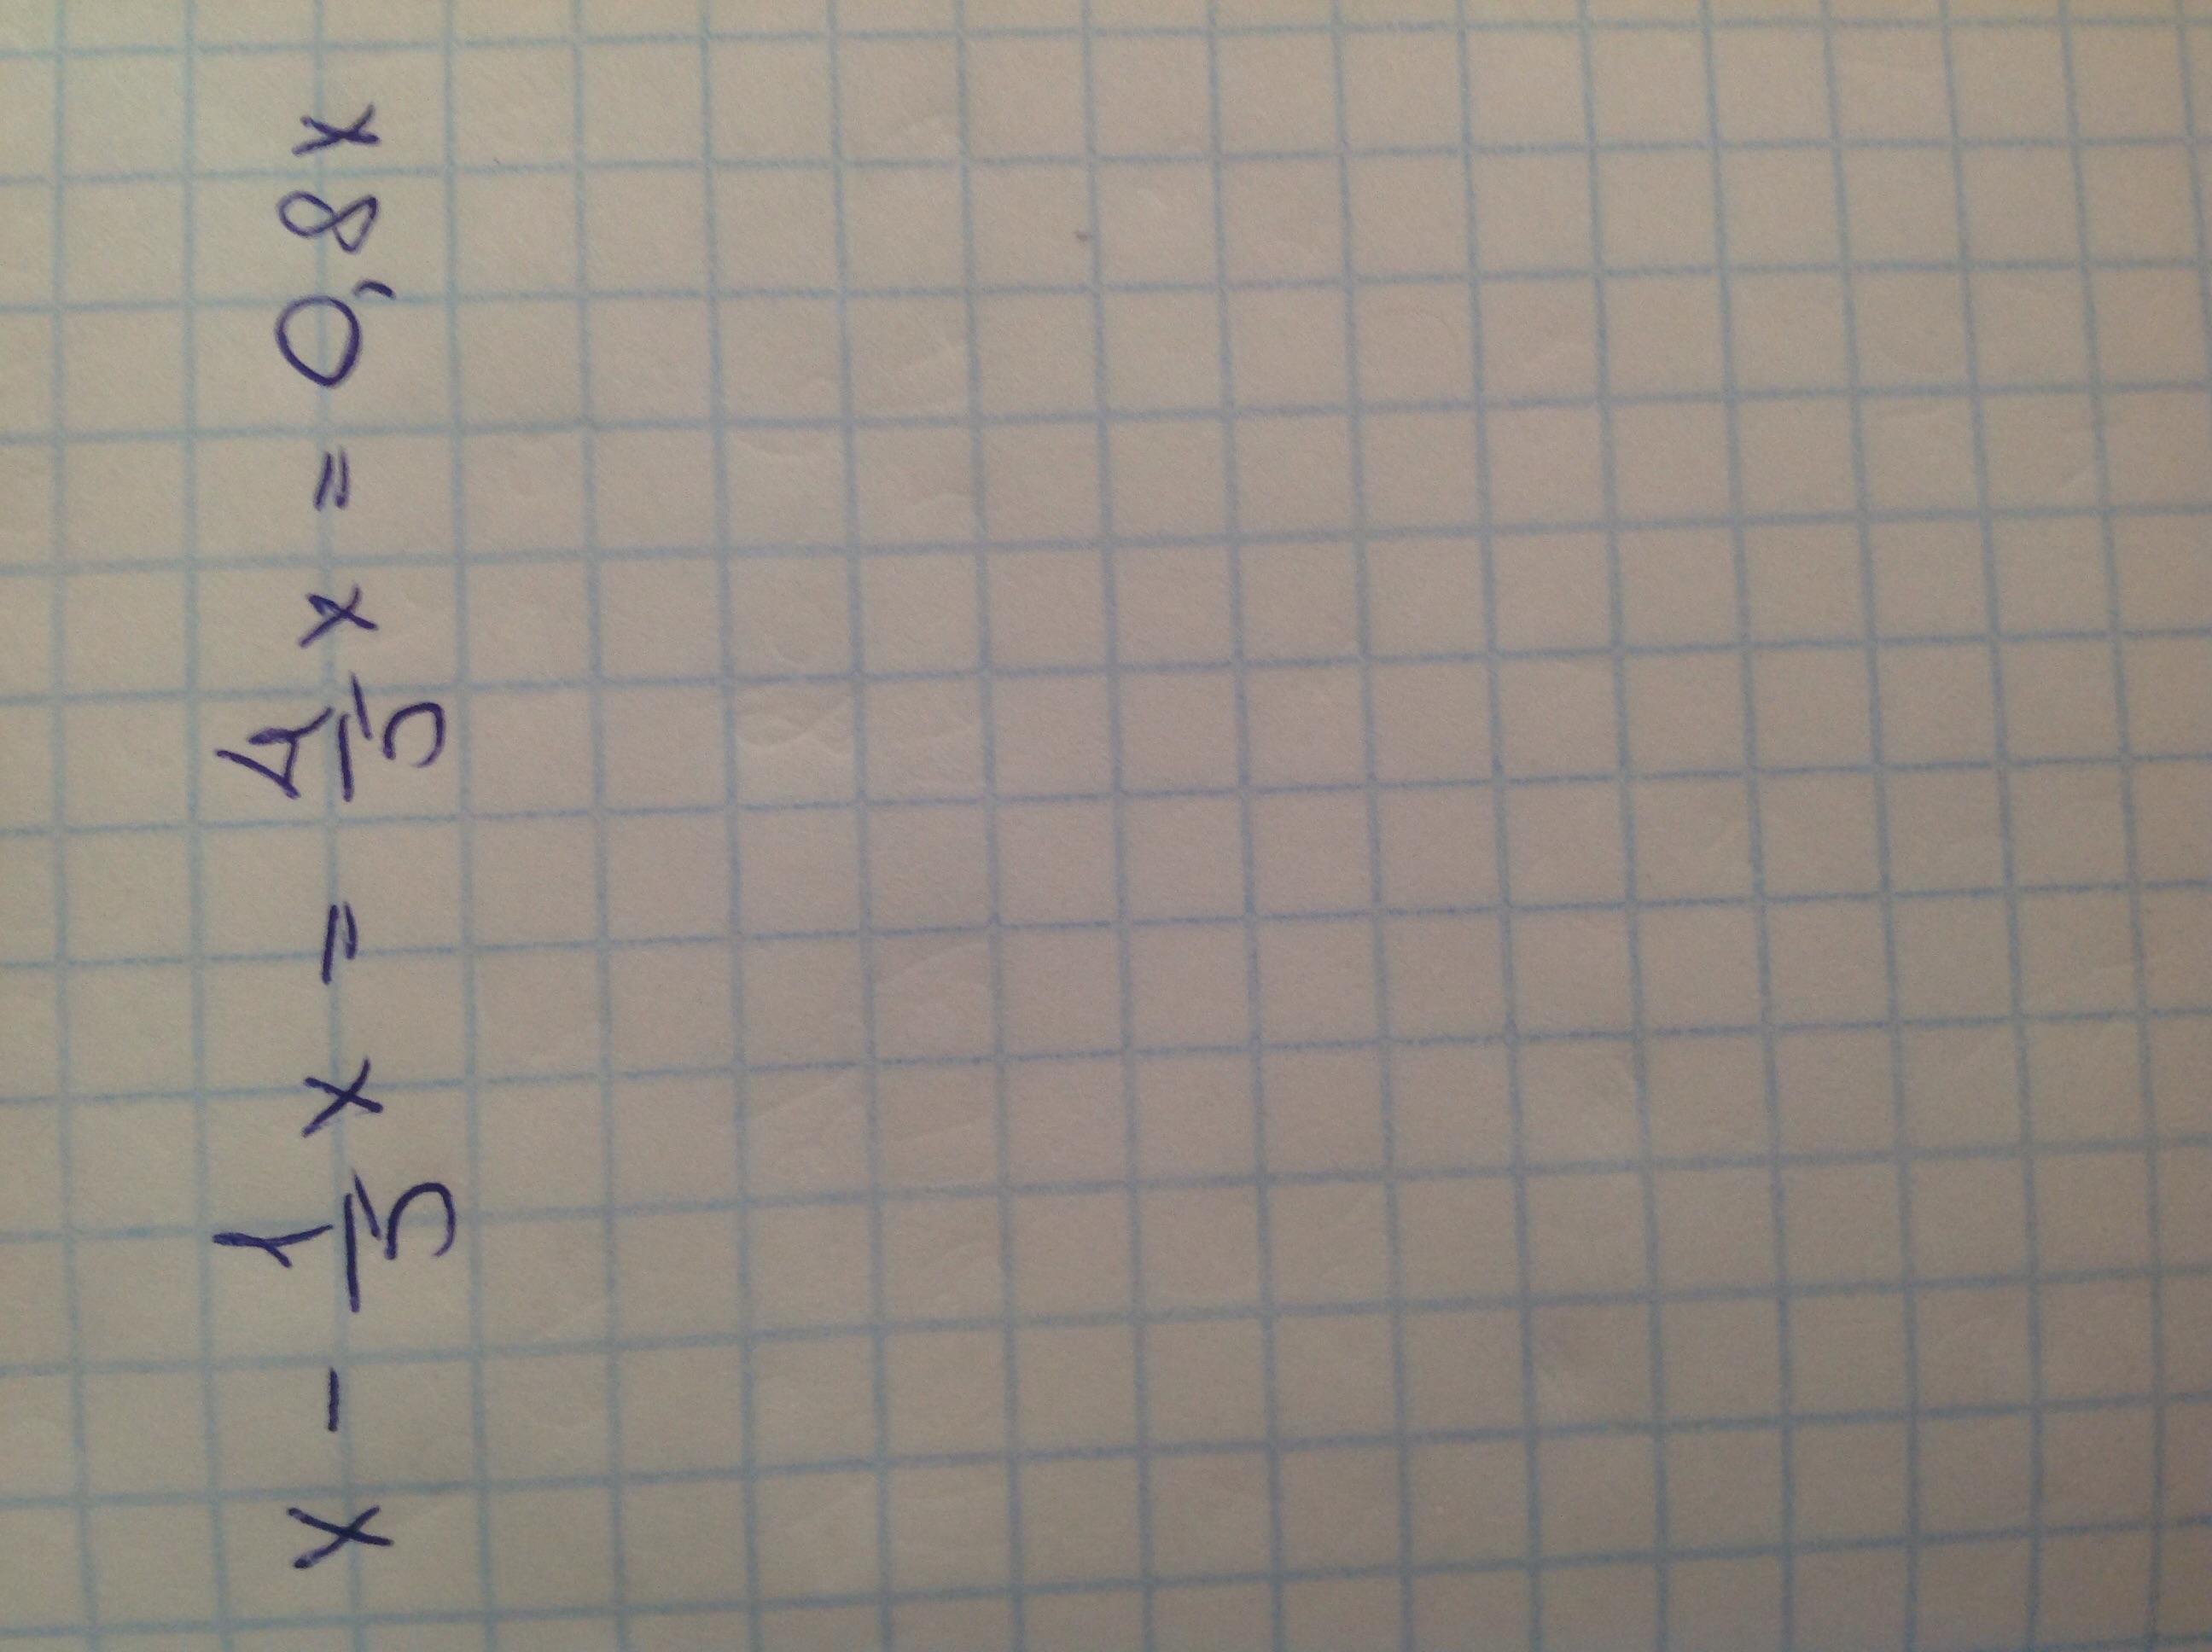 x - 1/5 x = 4/5 x = 0,8x